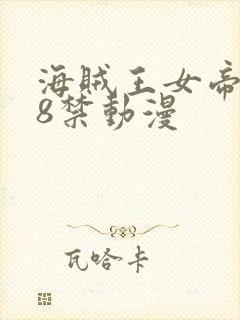 海賊王女帝
8禁動漫
瓦哈卡